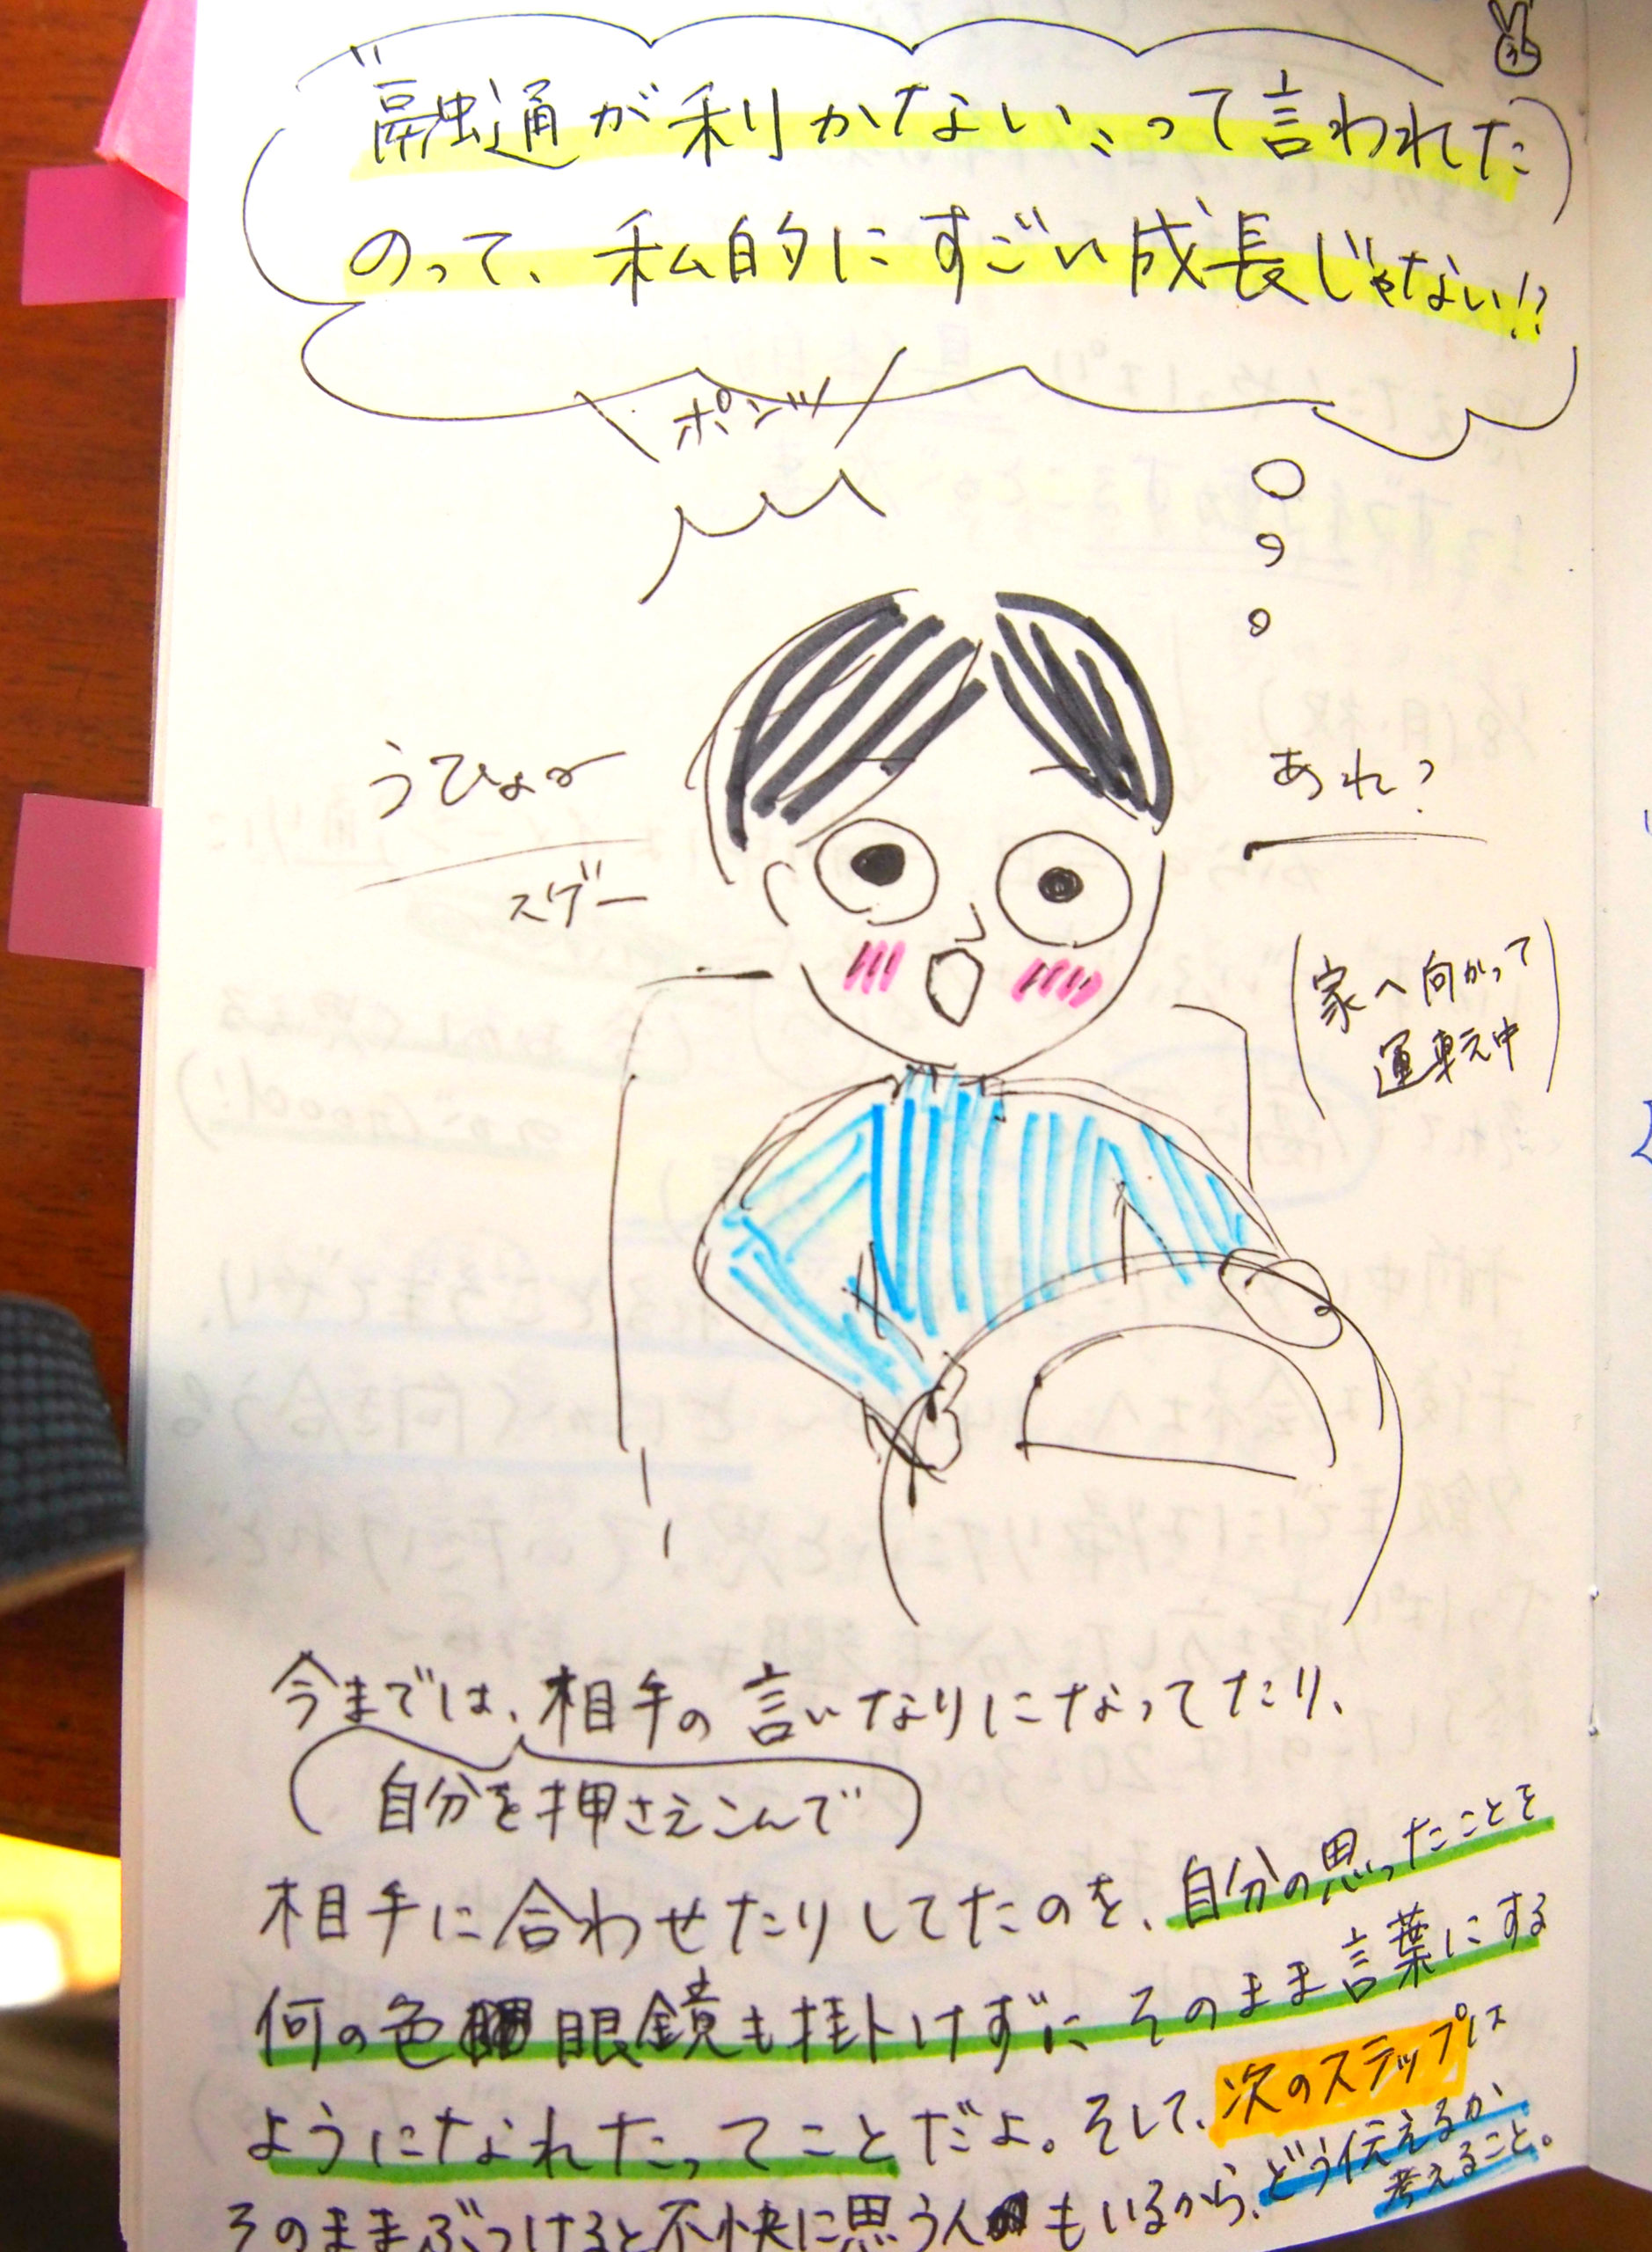 "融通が利かない〟って言われた
のって、私的にすごい成長じゃない!?
ポンッ
うひょー
スゲー
あれ?
(家へ向かって
運転中)
今までは、相手の言いなりになってたり、
(自分を押さえこんで)
相手に合わせたりしてたのを、自分の思ったことを
何の色眼鏡も掛けずにそのまま言葉にする
ようになれたってことだよ。そして、次のステップは
そのままぶつけると不快に思う人もいるから、どう伝えるか
考えること。